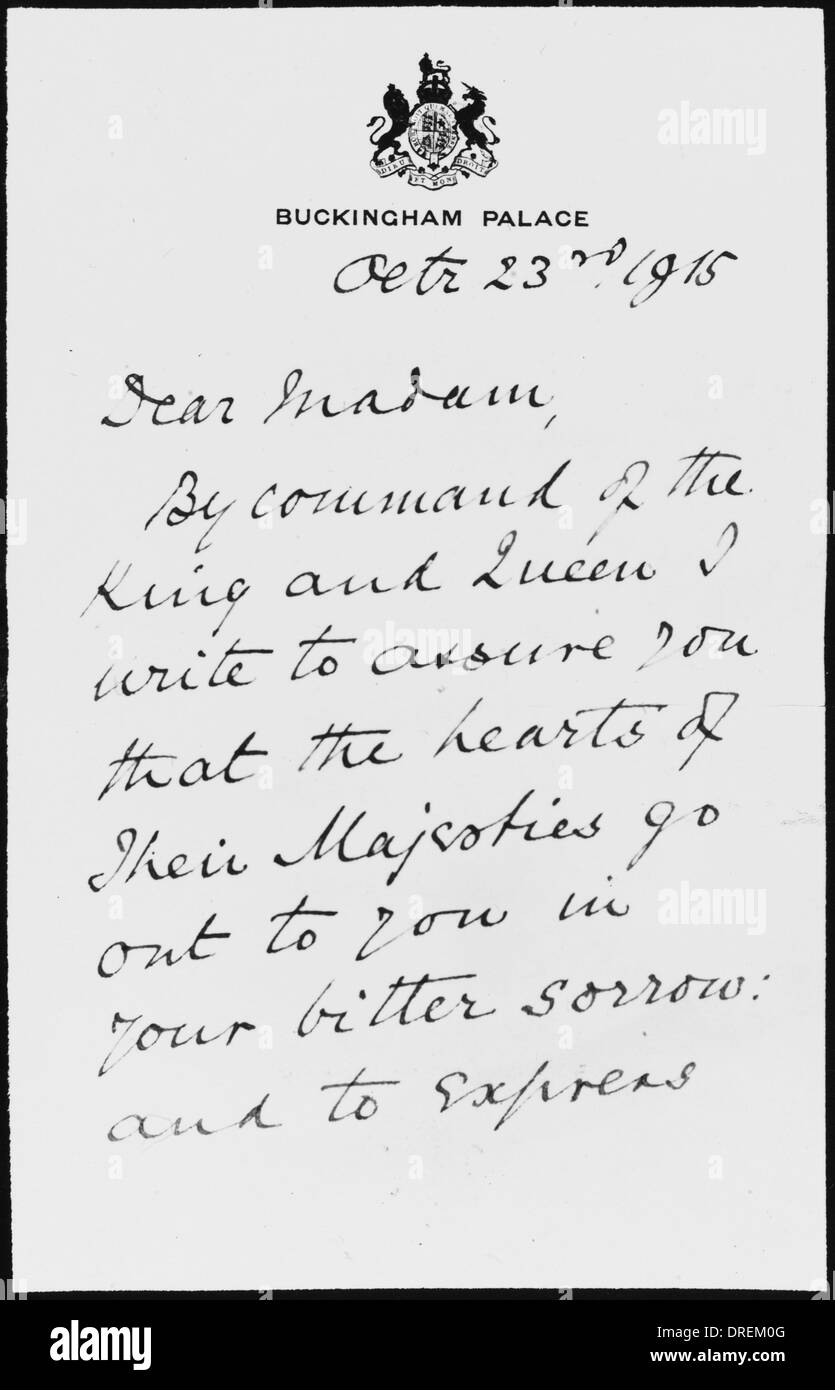 DIEU ET MON DROIT
BUCKINGHAM PALACE
Octr 23rd. 1915
Dear Madam,
By command of the
King and Queen I
write to assure you
that the hearts of
Their Majesties go
out to you in
your bitter sorrow:
and to express
alamy
alamy
alamy
alamy
a
a
a
a
a
alamy
Image ID: DREM0G
www.alamy.com